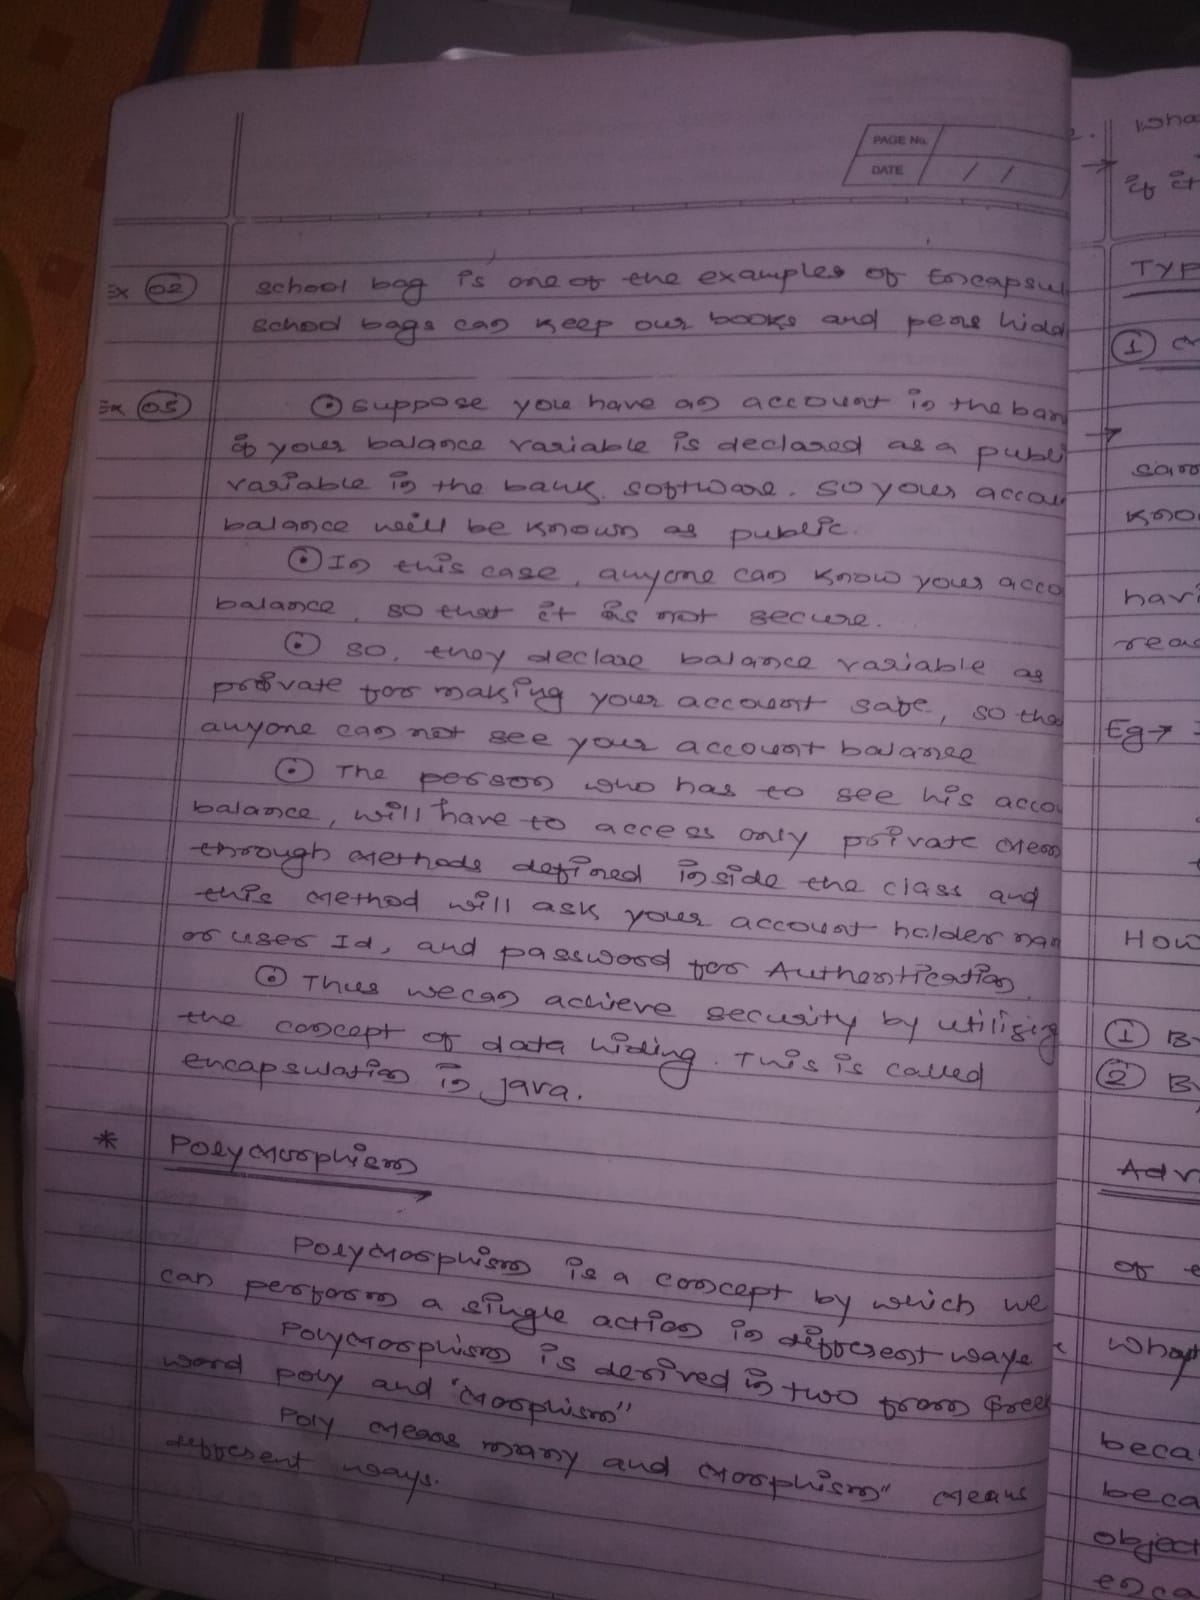 PAGE No.
DATE / /
Ex 02 school bag is one of the examples of Encapsul
school bags can keep our books and pens hidd
Ex 03 suppose you have an account in the ban
if your balance variable is declared as a publi
variable in the bank software. so your accou
balance will be known as public.
In this case, anyone can know your acco
balance, so that it is not secure.
so, they declare balance variable as
private for making your account safe, so tha
anyone can not see your account balance
The person who has to see his acco
balance, will have to access only private mem
through methods defined inside the class and
this method will ask your account holder nam
or user Id, and password for Authentication.
Thus we can achieve security by utilizing
the concept of data hiding. This is called
encapsulation in java.
* Polymorphism
Polymorphism is a concept by which we
can perform a single action in different ways
Polymorphism is derived in two from Greek
word poly and "morphism"
Poly means many and morphism" means
different ways.
wha
→ if it
TYP
1
→
sam
kno
havi
rea
Eg →
How
1 B
2 B
Adv
of e
what
beca
beca
object
enca